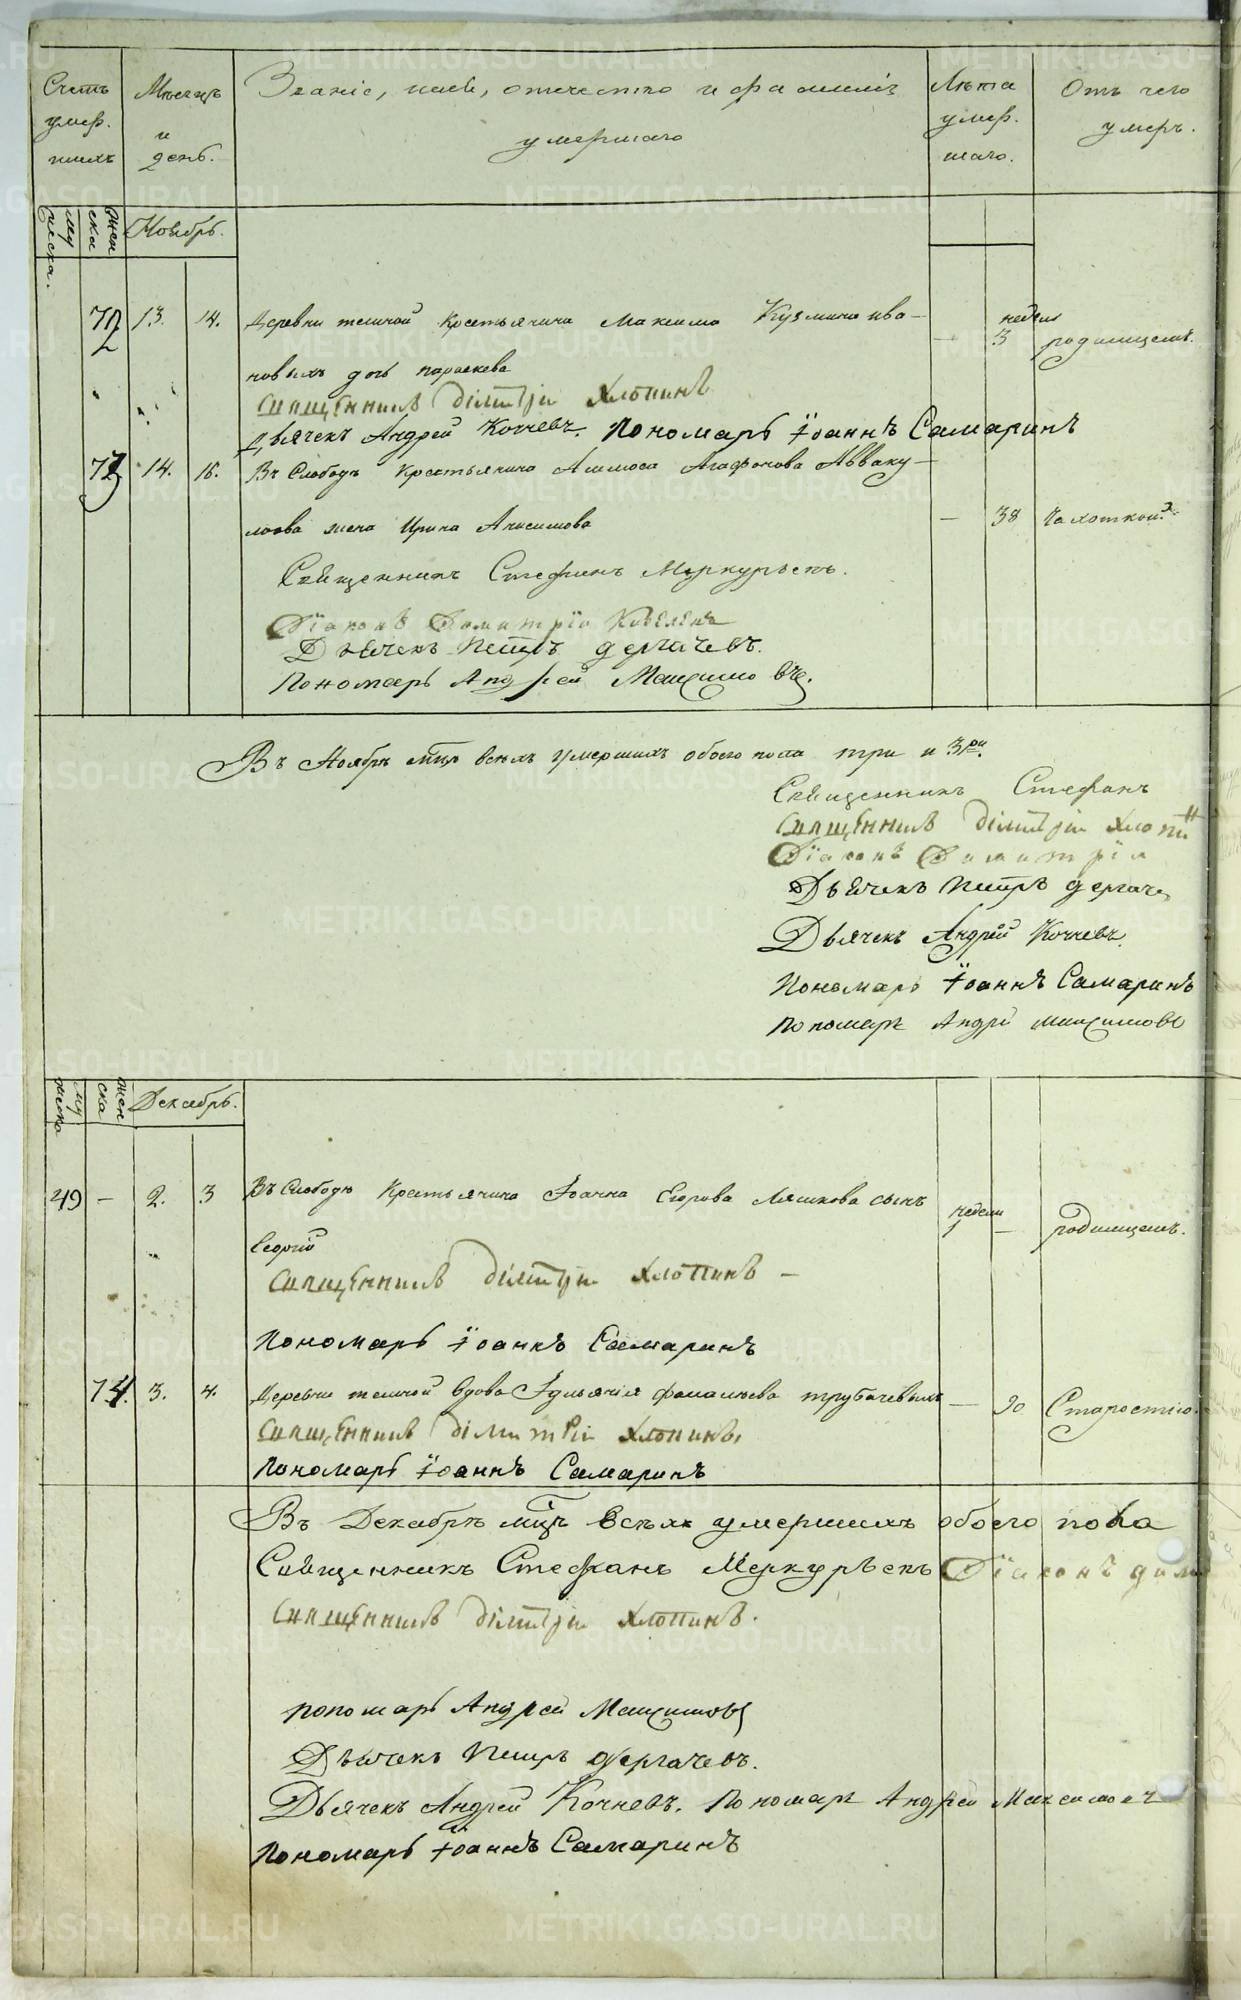 Счетъ умер. шихъ
Мѣсяцъ и день.
Званіе, имя, отечество и фамилія умершаго
Лѣта умер. шаго.
Отъ чего умеръ.
му жеска.
жен ска
Ноябрь.
72 13. 14. Деревни теличой крестьянина Максима Кузмина Ива-
новыхъ дочь параскева — недели 3 родимцемъ.
Священникъ Дімитрій Хлопинъ
Дьячекъ Андрей Кочневъ. Пономарь Іоаннъ Самаринъ
73 14. 16. Въ Слободѣ крестьянина Аммоса Агафонова Авваку-
мова жена Ирина Анисимова — 38 Чахоткой.
Священникъ Стефанъ Меркурьевъ.
Діаконъ Димитрій
Дьячекъ Петръ дергачевъ.
Пономарь Андрей Максимовъ.
Въ Ноябрѣ мцѣ всѣхъ умершихъ обоего пола три и 3ри.
Священникъ Стефанъ
Священникъ Дімитрій Хлопинъ
Діаконъ Димитрій
Дьячекъ Петръ дергаче
Дьячекъ Андрей Кочневъ.
Пономарь Іоаннъ Самаринъ
Пономарь Андрей Максимовъ
му жеска
жен ска
Декабрь.
49 — 2. 3 Въ Слободѣ Крестьянина Іоанна Егорова Ляшкова сынъ
Георгій недели 1 — родимцемъ.
Священникъ Дімитрій Хлопинъ —
Пономарь Іоаннъ Самаринъ
74. 3. 4. Деревни теличой вдова Іульянія фомалиева трубачевыхъ — 90 Старостію.
Священникъ Дімитрій Хлопинъ.
Пономарь Іоаннъ Самаринъ
Въ Декабрѣ мцѣ всѣхъ умершихъ обоего пола
Священникъ Стефанъ Меркурьевъ Діаконъ дими
Священникъ Дімитрій Хлопинъ.
пономарь Андрей Максимовъ
Дьячекъ Петръ дергачевъ.
Дьячекъ Андрей Кочневъ. Пономарь Андрей Максимовъ
Пономарь Іоаннъ Самаринъ
METRIKI.GASO-URAL.RU